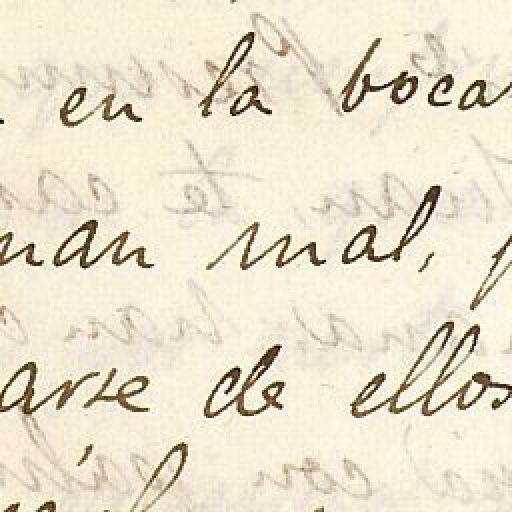 en la boca
nan mal,
arse de ellos